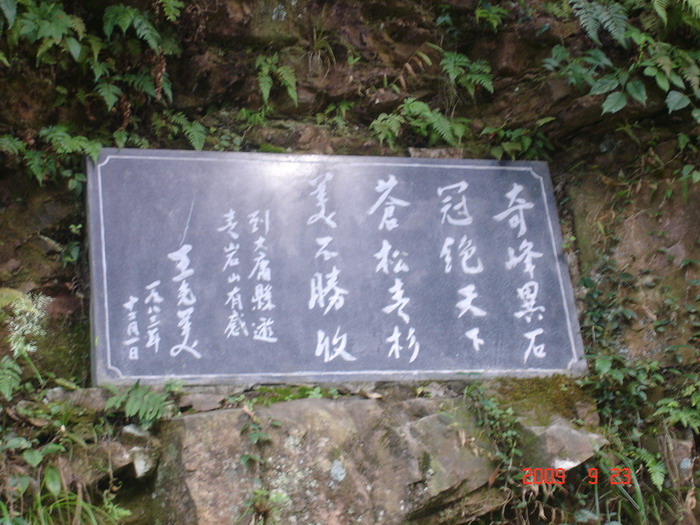 奇峰異石
冠绝天下
蒼松青杉
美不勝收
到大庸縣遊
青岩山有感
王光美
一九八二年
十二月一日
2009 9 23